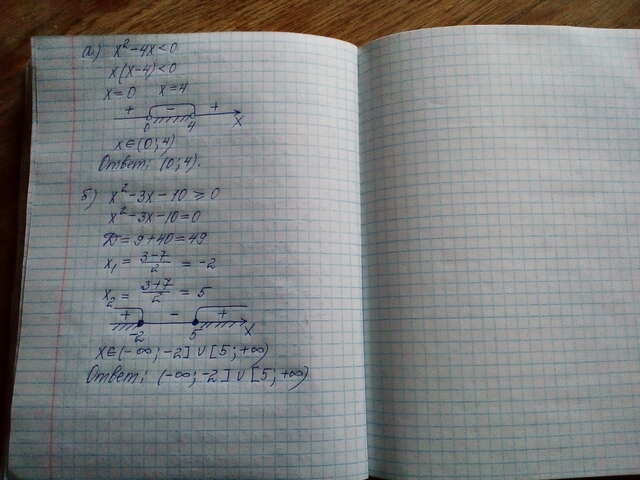 а) x²-4x<0
x(x-4)<0
x=0 x=4
+ - +
0 4 x
x∈(0;4)
Ответ: (0;4).
б) x²-3x-10≥0
x²-3x-10=0
D=9+40=49
x₁ = (3-7)/2 = -2
x₂ = (3+7)/2 = 5
+ - +
-2 5 x
x∈(-∞;-2]∪[5;+∞)
Ответ: (-∞;-2]∪[5;+∞)